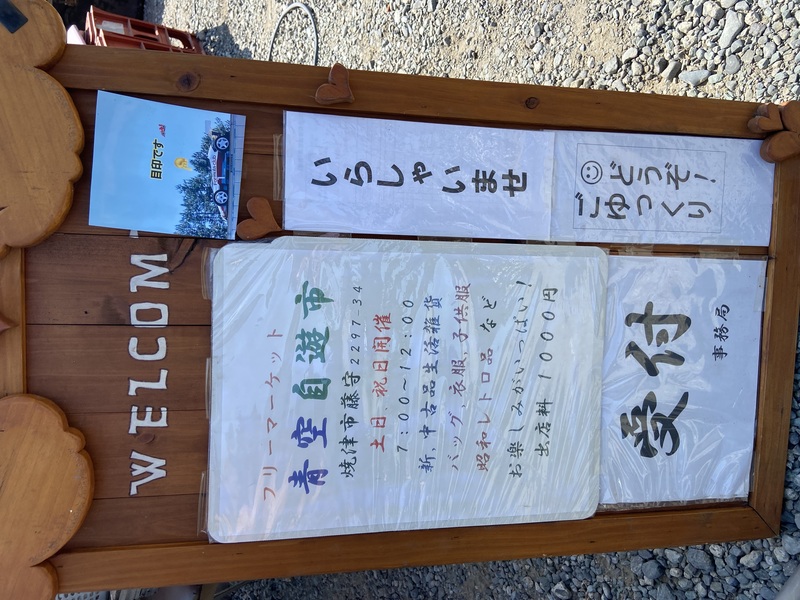 WELCOM
目印です
フリーマーケット
青空自遊市
焼津市藤守2297-34
土日、祝日開催
7:00~12:00
新、中古品生活雑貨
バッグ、衣服、子供服
昭和レトロ品 など
お楽しみがいっぱい!
出店料 1000円
いらしゃいませ
どうぞ!
ごゆっくり
受付
事務局